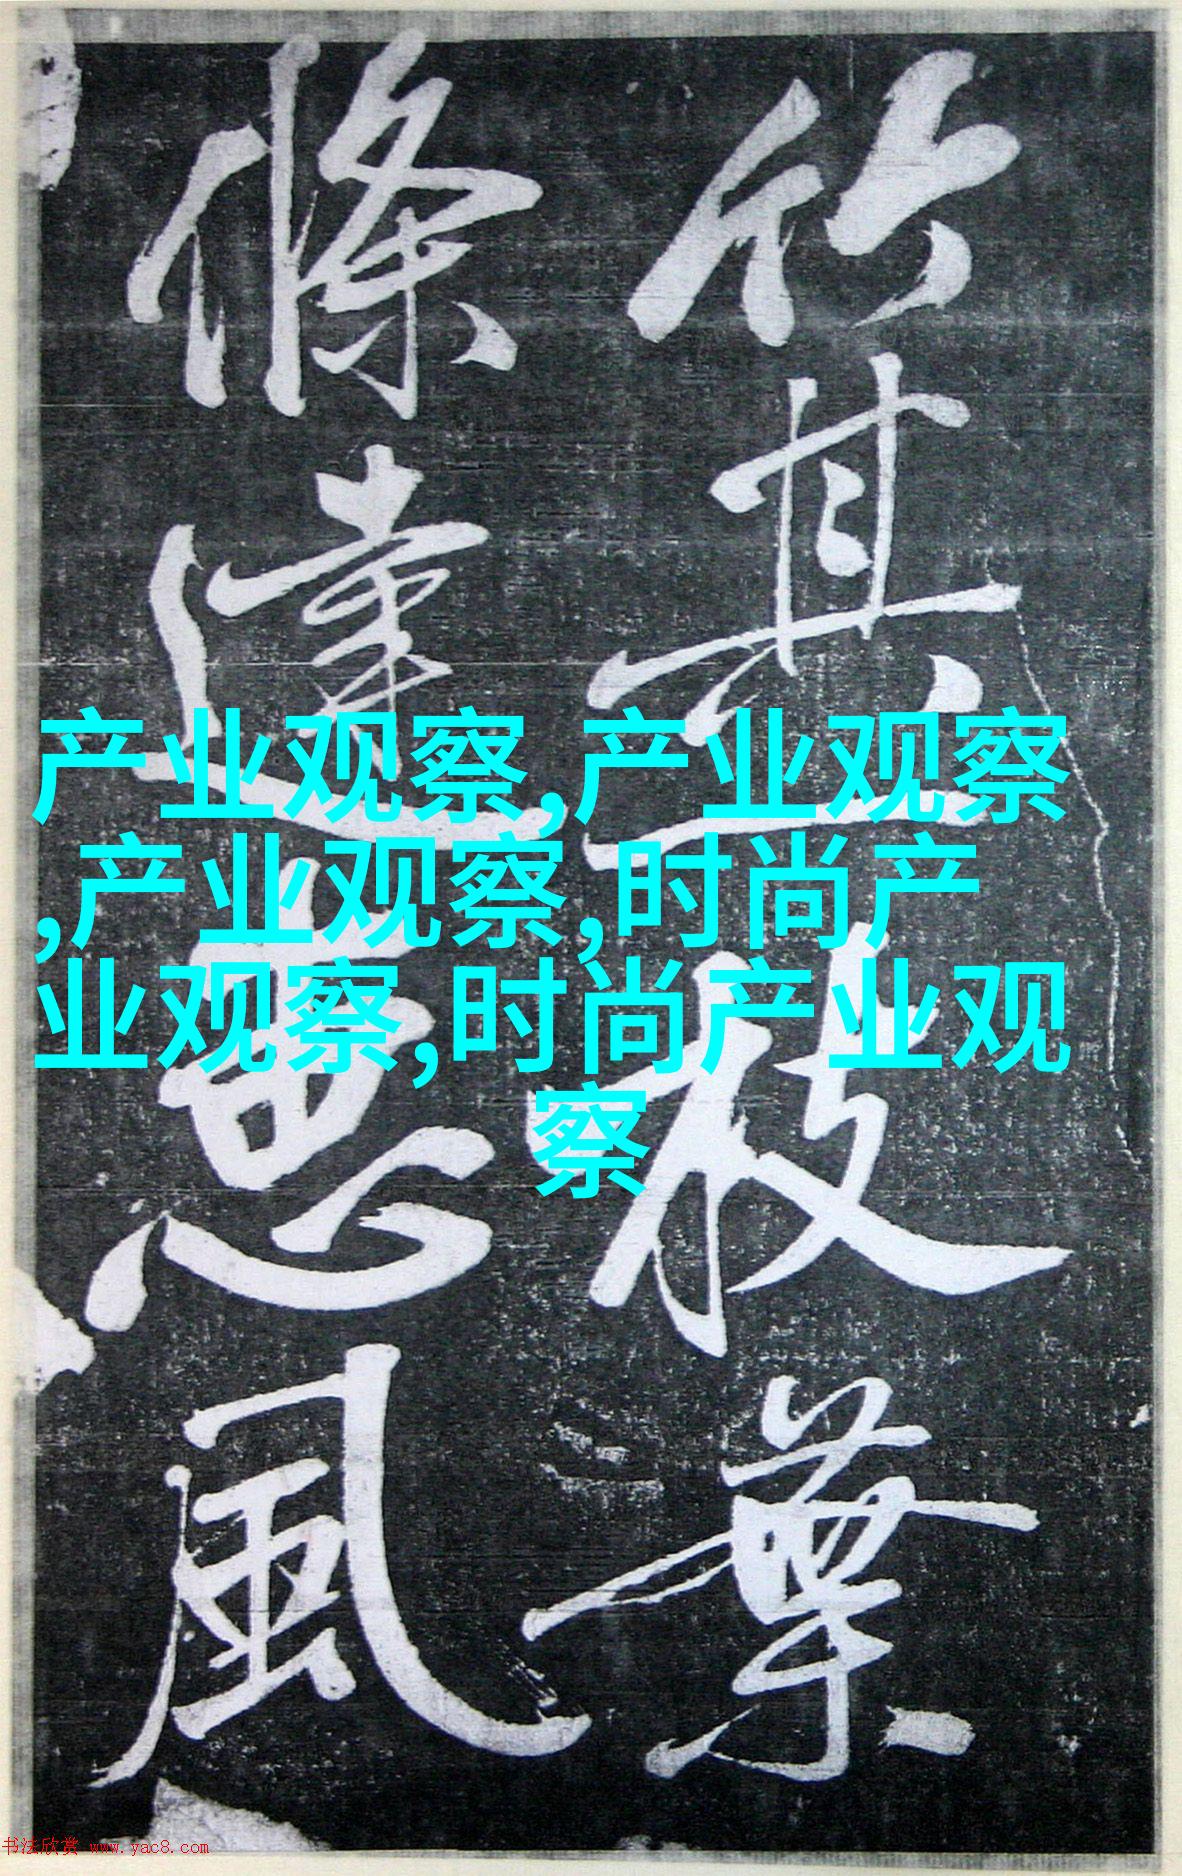 竹其枝葉
條達惠風
产业观察,产业观察
,产业观察,时尚产
业观察,时尚产业观
察
书法欣赏 www.yac8.com